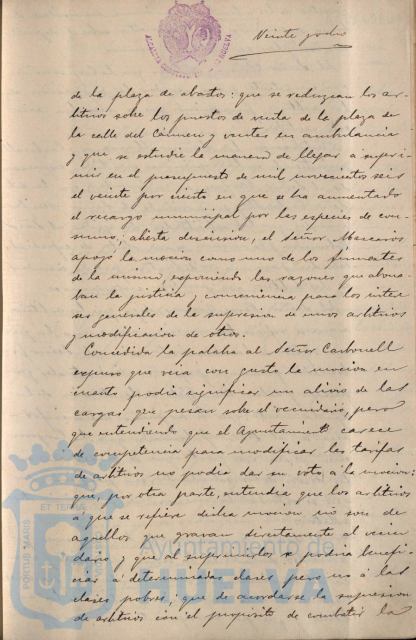 Veinte y ocho
de la plaza de abastos: que se reduzcan los ar-
bitrios sobre los puestos de venta de la plaza de
la calle del Cármen y ventas en ambulancia
y que se estudie la manera de llegar a supri-
mir en el presupuesto de mil novecientos seis
el veinte por ciento en que se ha aumentado
el recargo municipal por las especies de con-
sumo; abierta discusion, el Señor Mascarós
apoyó la mocion como uno de los firmantes
de la misma, exponiendo las razones que abona-
ban la justicia y conveniencia para los intere-
ses generales de la supresion de unos arbitrios
y modificacion de otros.
Concedida la palabra al Señor Carbonell
expuso que veia con gusto la mocion en
cuanto podia significar un alivio de las
cargas que pesan sobre el vecindario, pero
que entendiendo que el Ayuntamiento carece
de competencia para modificar las tarifas
de arbitrios no podia dar su voto á la mocion:
que, por otra parte, entendia que los arbitrios
á que se refiere dicha mocion no son de
aquellos que gravan directamente al vecin-
dario y que al suprimirlos se podria benefi-
ciar á determinadas clases pero no á las
clases pobres; que de acordarse la supresion
de arbitrios con el propósito de combatir la
PORTUS MARIS
ET TERRAE
Ayuntamiento de
HUELVA